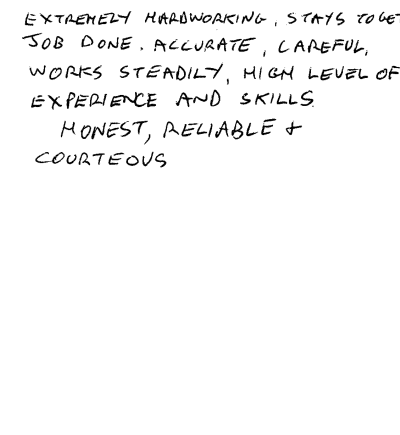 EXTREMELY HARDWORKING, STAYS TO GET
JOB DONE. ACCURATE, CAREFUL,
WORKS STEADILY, HIGH LEVEL OF
EXPERIENCE AND SKILLS.
HONEST, RELIABLE &
COURTEOUS